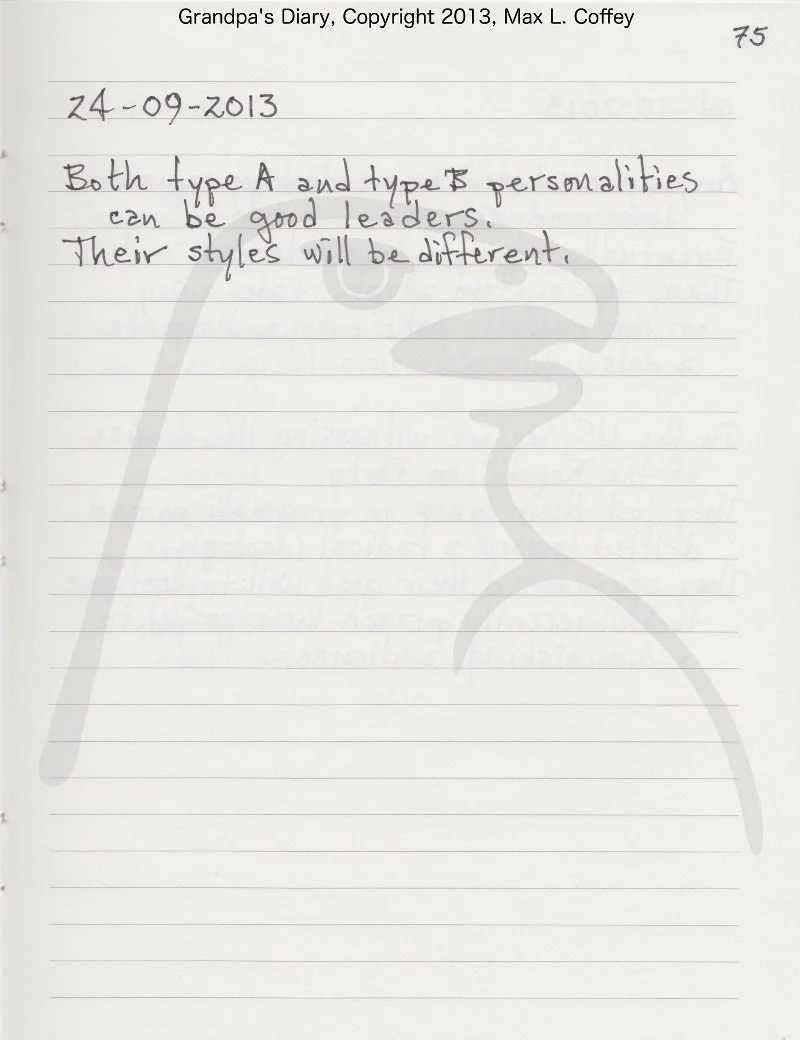 Grandpa's Diary, Copyright 2013, Max L. Coffey
75
24-09-2013
Both type A and type B personalities
can be good leaders.
Their styles will be different.